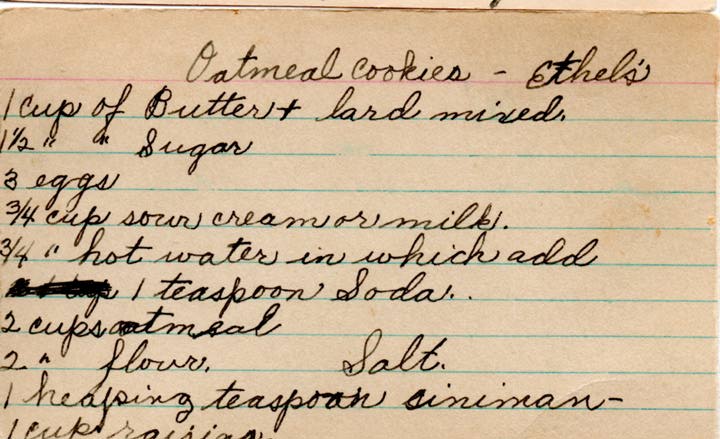 Oatmeal cookies - Ethel's
1 cup of Butter + lard mixed.
1 1/2 " " Sugar
3 eggs
3/4 cup sour cream or milk.
3/4 " hot water in which add
1 teaspoon Soda..
2 cups oatmeal
2 " flour. Salt.
1 heaping teaspoon siniman-
1 cup raisins.